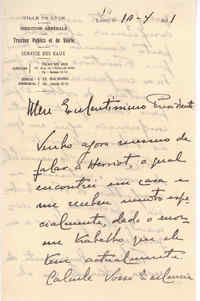 VILLE DE LYON
DIRECTION GÉNÉRALE
Travaux Publics et de Voirie
SERVICE DES EAUX
10-4
Meu Excelentissimo Presidente
Venho agora mesmo de
falar a Herriot, a qual
encontrei em casa e
me recebeu muito espe-
cialmente, dado o enor-
me trabalho que ele
tem actualmente
Calcule Vossa Excelencia